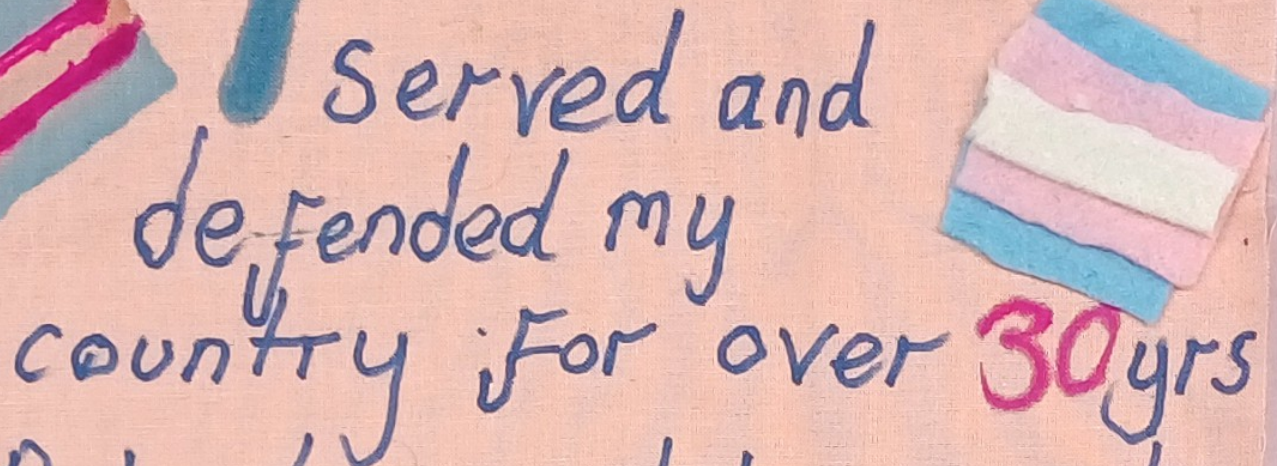 I served and
defended my
country for over 30yrs